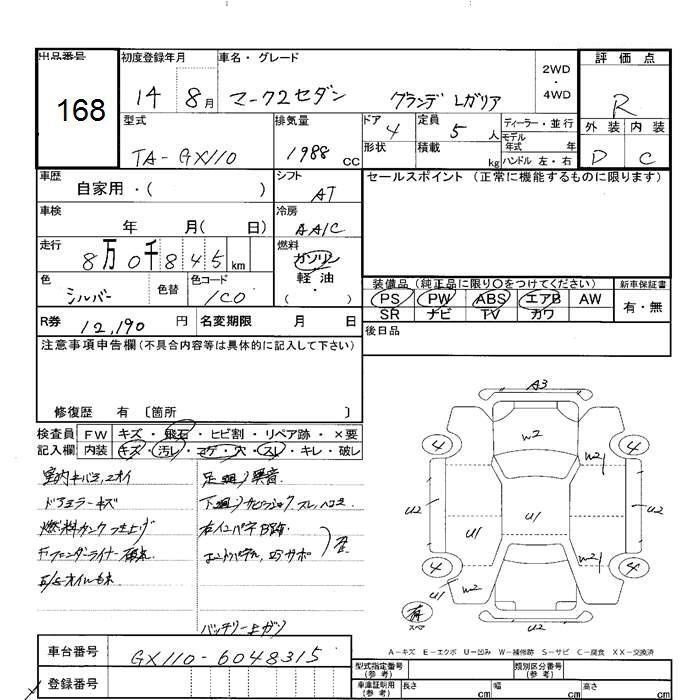 出品番号 初度登録年月 車名・グレード 2WD・4WD 評価点
168 14 8月 マーク2セダン グランデ Lガリア R
型式 排気量 ドア 4 定員 5人 ディーラー・並行 外装 内装
TA-GX110 1988cc 形状 積載 kg モデル年式 年 D C
ハンドル 左・右
車歴 シフト セールスポイント (正常に機能するものに限ります)
自家用・( ) AT
車検 冷房
年 月( 日) AAC
走行 燃料
8万0千845km ガソリン
軽油
色 色替 色コード ( ・ )
シルバー 1C0
装備品 (純正品に限り○をつけてください) 新車保証書
PS PW ABS エアB AW 有・無
SR ナビ TV カワ
R券 12,190円 名変期限 月 日 後日品
注意事項申告欄(不具合内容等は具体的に記入して下さい)
修復歴 有 〔箇所 〕
検査員 FW キズ・飛石・ヒビ割・リペア跡・×要
記入欄 内装 キズ・汚レ・コゲ・穴・スレ・キレ・破レ
ドアミラーキズ
足廻り異音
燃料タンク
Fフェンダーライナー
バッテリー上ガリ
A3
W2
4 4
W2
U2 U1 U1 U2
W2
4 4
U1 W2
有 スペア
U2
A-キズ E-エクボ U-凹み W-補修跡 S-サビ C-腐食 XX-交換済
車台番号 GX110-6048315
登録番号
型式指定番号(参考) 類別区分番号(参考)
車庫証明用(参考) 長さ cm 幅 cm 高さ cm